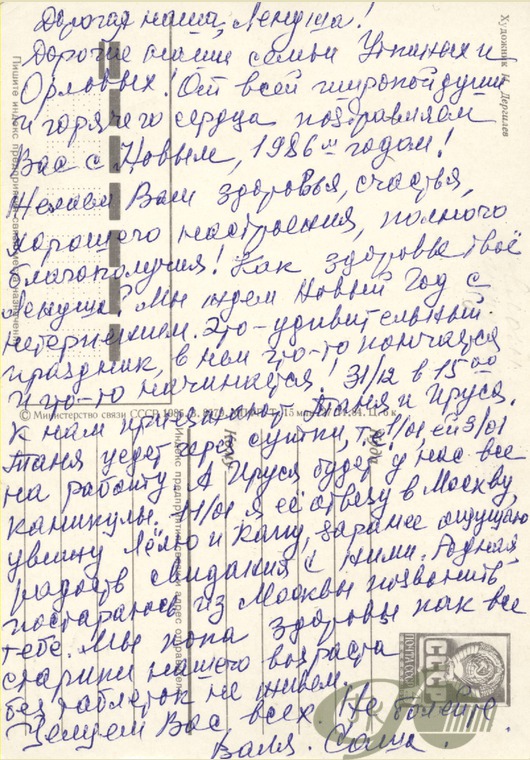 Дорогая наша, Ленуша!
Дорогие наши семьи Утиных и
Орловых! От всей широкой души
и горячего сердца поздравляем
Вас с Новым, 1986 м годом!
Желаем Вам здоровья, счастья,
хорошего настроения, полного
благополучия! Как здоровье твоё
Ленуша? Мы ждем Новый Год с
нетерпением. Это - удивительный
праздник, в нем что-то кончается
и что-то начинается! 31/12 в 15 00
к нам приезжают Таня и Ируся.
Таня уедет через сутки, т.к. ей 3/01
на работу. А Ируся будет у нас все
каникулы. 11/01 я её отвезу в Москву,
увижу Лёлю и Капу, заранее ощущаю
радость свидания с ними. Родная,
постараюсь из Москвы позвонить
тебе. Мы пока здоровы как все
старики нашего возраста
без таблеток не живем.
Целуем Вас всех. Не болейте.
Валя. Саша.
Художник Н. Дергилев
Пишите индекс предприятия связи места назначения
© Министерство связи СССР
Куда
Кому
Индекс предприятия связи и адрес отправителя
ПОЧТА СССР